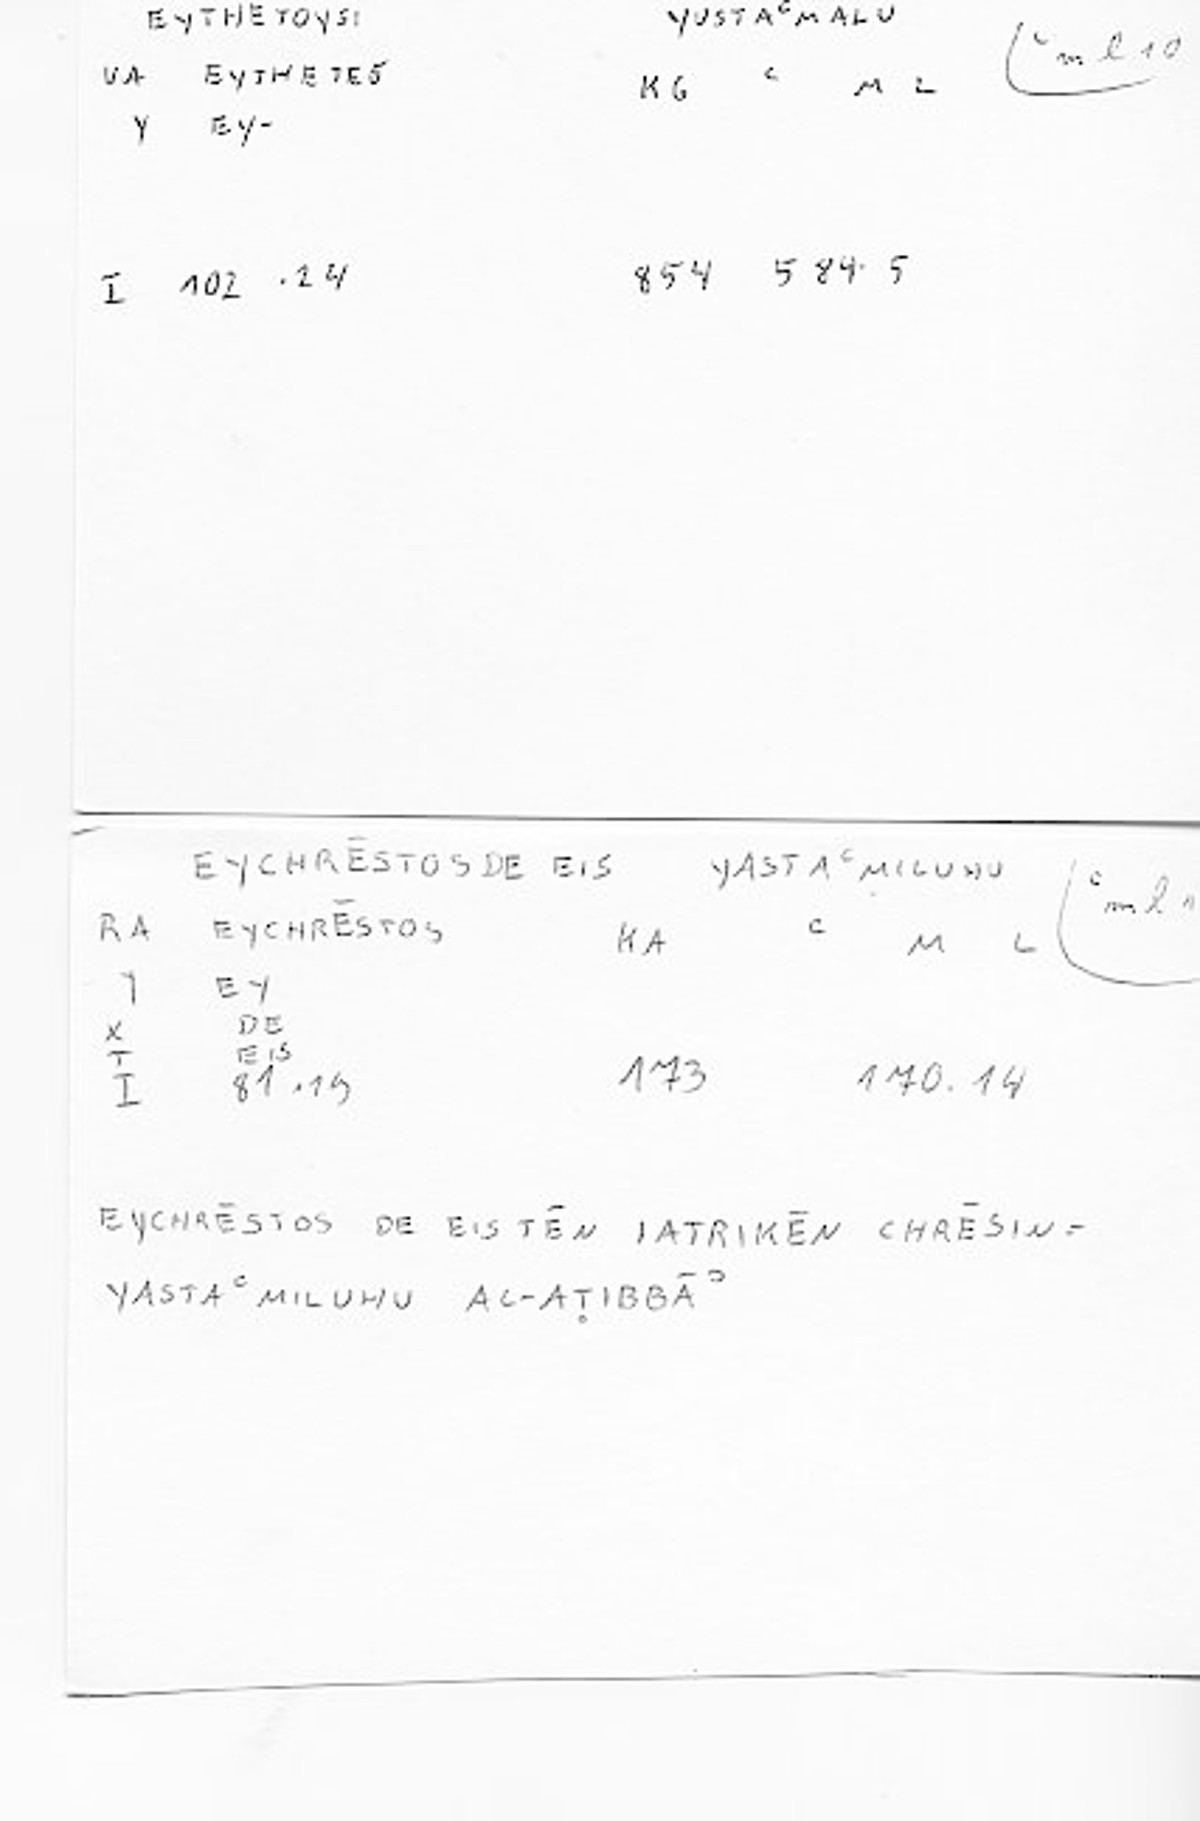 EYTHETOYSI YUSTAʿMALU ʿml 10
VA EYTHETEŌ KG ʿ M L
Y EY-
I 102 .24 854 584.5
EYCHRĒSTOS DE EIS YASTAʿMILUHU ʿml 1
RA EYCHRĒSTOS KA ʿ M L
Y EY
X DE
T EIS
I 81.19 173 170.14
EYCHRĒSTOS DE EIS TĒN IATRIKĒN CHRĒSIN =
YASTAʿMILUHU AL-AṬIBBĀʾ